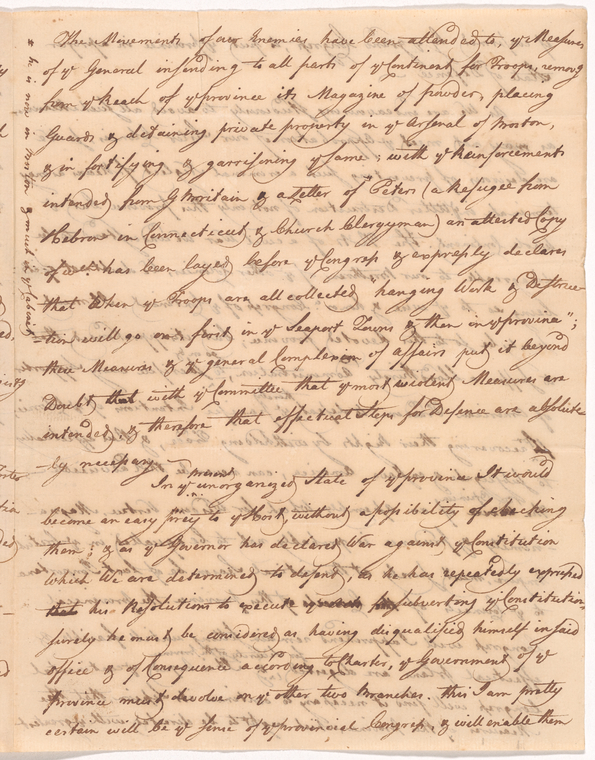 The Movements of our Enemies have been attended to, ye Measures
of ye General in sending to all parts of ye Continent for Troops, removg
from ye Reach of ye province its Magazine of powder, placing
Guards & detaining private property in ye Arsenal of Boston,
& in fortifying & garrisoning ye same; with ye Reinforcements
intended from G Brittain & a Letter of Peters (a Refugee from
Hebron in Connecticut & Church Clergyman) an attested Copy
of wch has been layed before ye Congress & expressly declares
that when ye Troops are all collected "hanging Work & Destruc-
-tion will go on first in ye Seaport Towns & then in ye province";
these Measures & ye general Complexion of affairs put it beyond
Doubt that with ye Committee that ye most violent Measures are
intended & therefore that effectual Steps for Defence are absolute
-ly necessary
In ye present unorganized State of ye province It would
become an easy prey to ye Host, without a possibility of checking
them; & as ye Governor has declared War against ye Constitution
which We are determined to defend, as he has repeatedly expressed
that his Resolutions to execute subverting ye Constitution
surely he must be considered as having disqualified himself in said
office & of Consequence according to Charter, ye Government of ye
province must devolve on ye other two Branches. this I am pretty
certain will be ye sense of ye provincial Congress, & will enable them
* he is now in Boston & must be ye